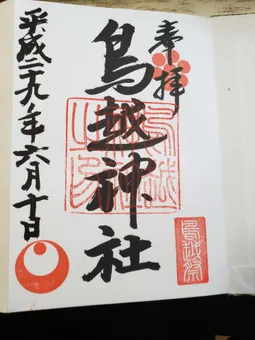 奉拝
鳥越神社
平成二十九年六月十日
鳥越祭